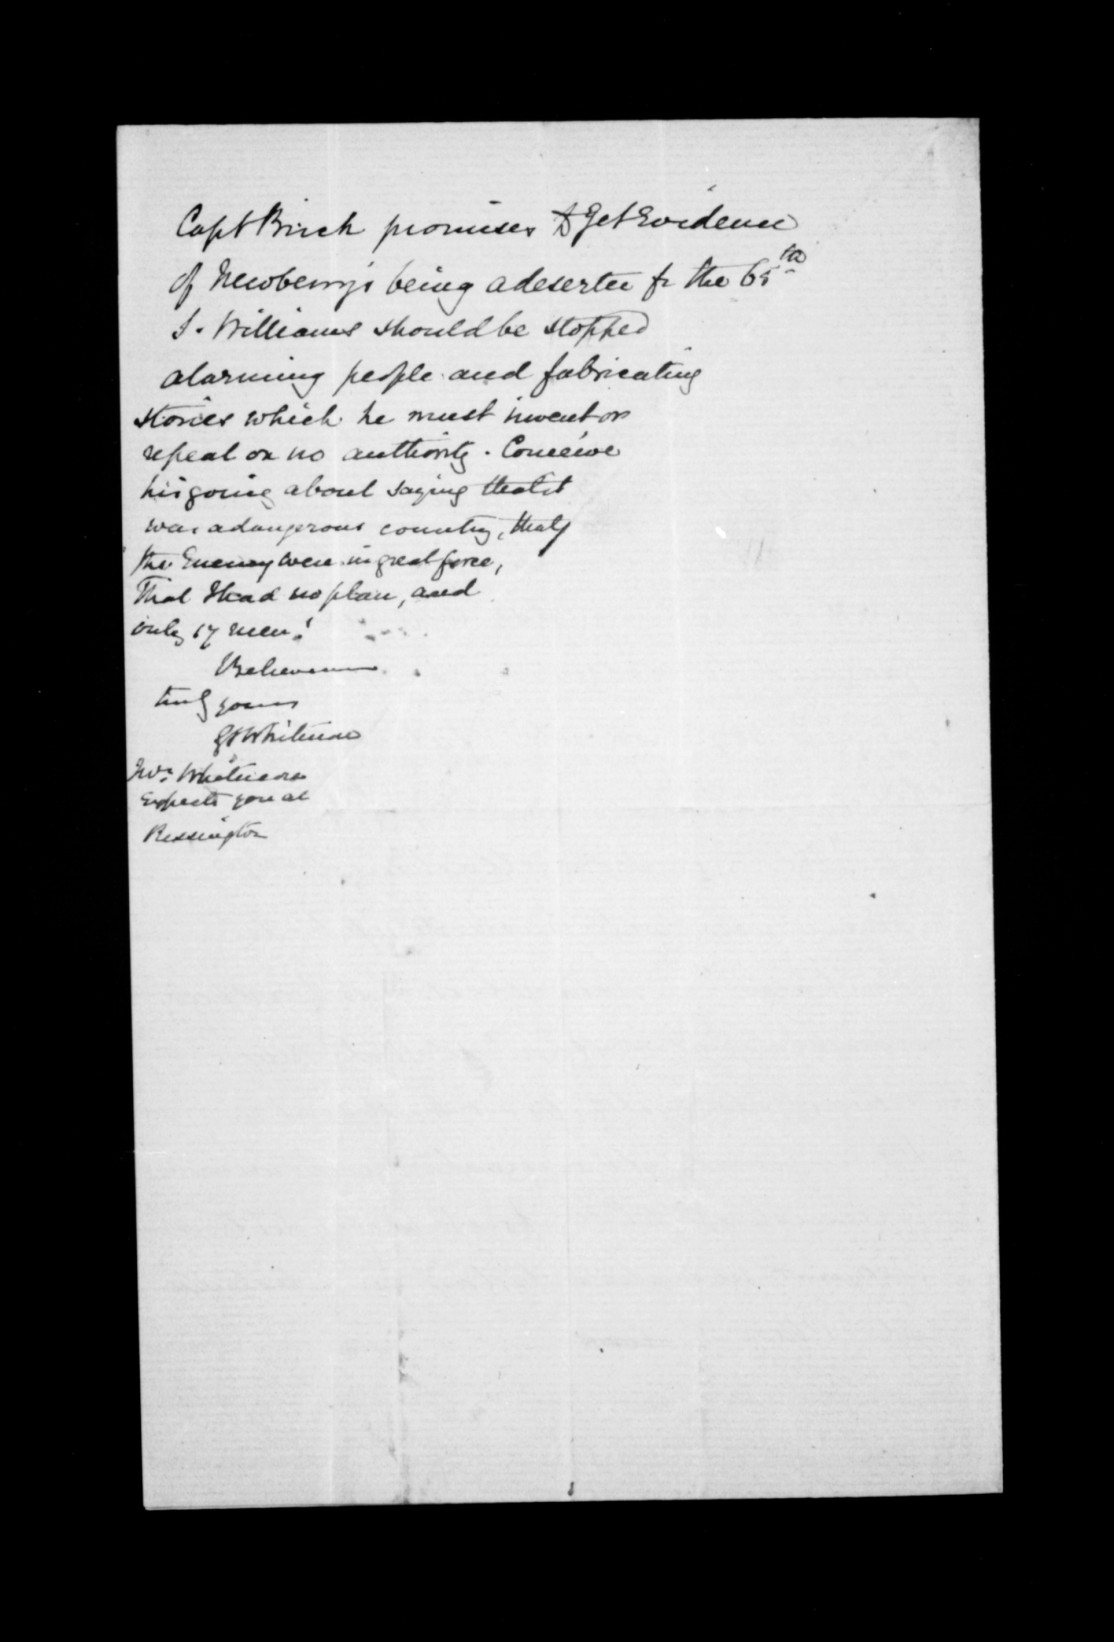 Capt Birch promises to get Evidence
of Newberry's being a deserter fr the 65th
S. Williams should be stopped
alarming people and fabricating
stories which he must invent or
repeat on no authority. Conceive
his going about saying that it
was a dangerous country, that
the Enemy were in great force,
That I had no plan, and
only 17 men!
Believe me
truly yours
GS Whitmore
Mrs Whitmore
expects you at
Rissington